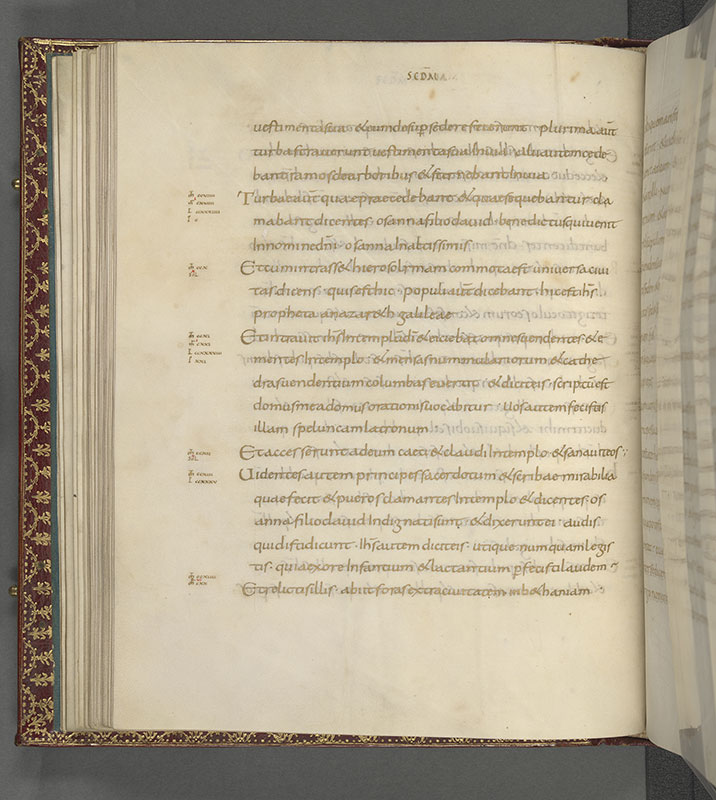 SCDM
vestimenta sua & eum desup sedere fecerunt · plurima aut
turba straverunt vestimenta sua In via · alii autem cede
bant ramos de arboribus & sternebant In via ·
Turbae aut quae praecedebant & quae sequebantur cla
mabant dicentes · osanna filio david · benedictus qui venit
In nomine dni · osanna In altissimis ·
Et cum intrass& hierosolimam commota est universa civi
tas dicens · quis est hic · populi aut dicebant · hic est ihs
propheta a nazar&h galileae
Et intravit ihs In templu di & eiciebat omnes vendentes · & e
mentes In templo · & mensas numolariorum & cathe
dras vendentium columbas evertit · & dicit eis · scriptu est
domus mea domus orationis vocabitur · Vos autem fecistis
illam speluncam latronum ·
Et accesserunt ad eum caeci & claudi In templo · & sanavit eos ·
Videntes autem principes sacerdotum & scribae mirabilia
quae fecit & pueros clamantes In templo & dicentes · os
anna filio david Indignati sunt & dixerunt ei · audis
quid isti dicunt · Ihs autem dicit eis · utique numquam legis
tis · quia ex ore Infantium & lactantium pfecisti laudem
Et relictis illis · abiit foras extra civitatem in b&haniam